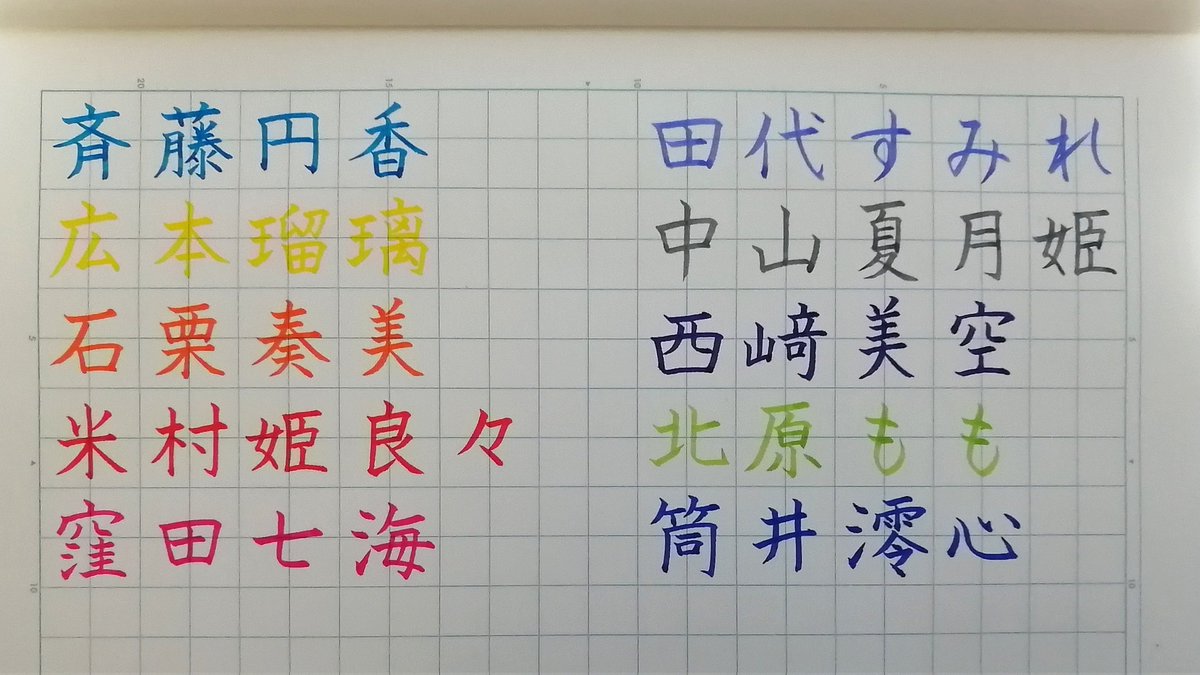 斉藤円香
広本瑠璃
石栗奏美
米村姫良々
窪田七海
田代すみれ
中山夏月姫
西﨑美空
北原もも
筒井澪心